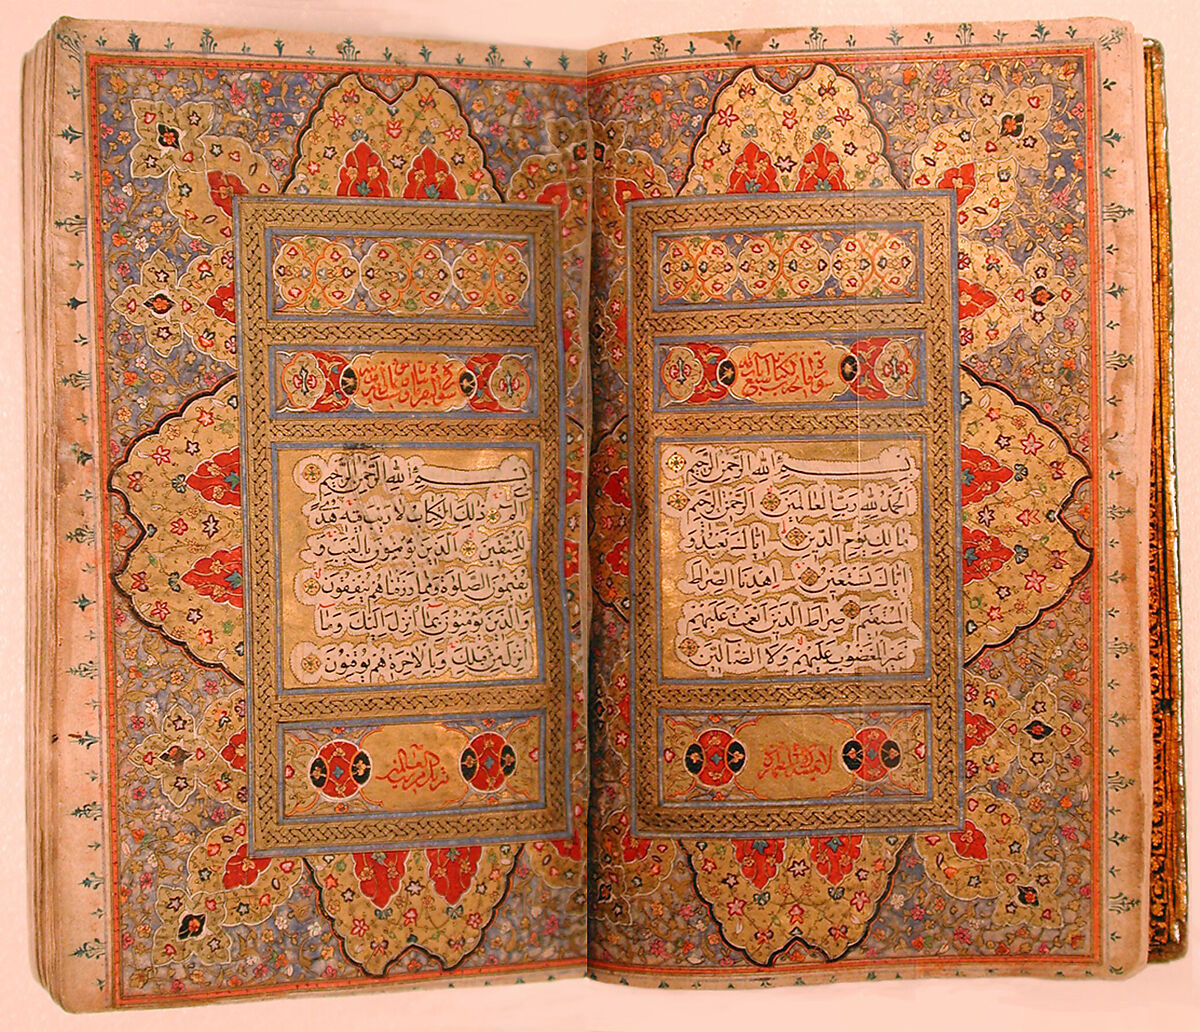 سورة فاتحة الكتاب سبع
بسم الله الرحمن الرحيم
الحمد لله رب العالمين الرحمن الرحيم
مالك يوم الدين اياك نعبد و
اياك نستعين اهدنا الصراط
المستقيم صراط الذين انعمت عليهم
غير المغضوب عليهم ولا الضالين
لا يمسه الا المطهرون
سورة البقرة
بسم الله الرحمن الرحيم
الم ذلك الكتاب لا ريب فيه هدى
للمتقين الذين يؤمنون بالغيب و
يقيمون الصلوة ومما رزقناهم ينفقون
والذين يؤمنون بما انزل اليك وما
انزل من قبلك وبالاخرة هم يوقنون
تنزيل من رب العالمين